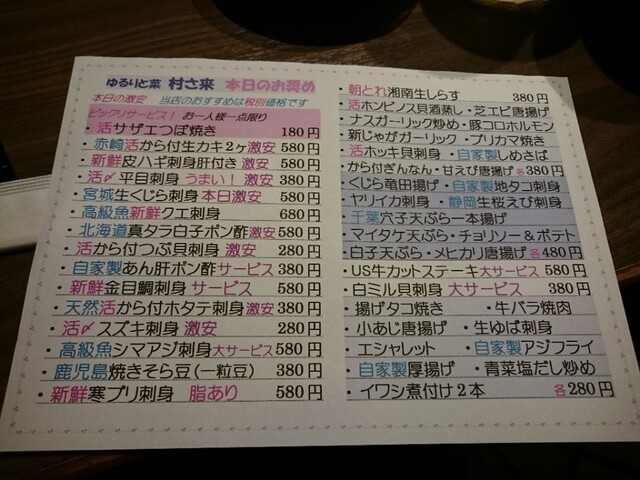 ゆるりと菜 村さ来 本日のお奨め
本日の激安 当店のおすすめは税別価格です
ビックリサービス! お一人様一点限り
・活サザエつぼ焼き 180円
・赤崎活から付生カキ2ヶ激安 580円
・新鮮皮ハギ刺身肝付き 激安 580円
・活〆平目刺身 うまい! 激安 380円
・宮城生くじら刺身 本日激安 580円
・高級魚新鮮クエ刺身 680円
・北海道真タラ白子ポン酢激安 580円
・活から付つぶ貝刺身 激安 280円
・自家製あん肝ポン酢サービス 380円
・新鮮金目鯛刺身 サービス 580円
・天然活から付ホタテ刺身激安 380円
・活〆スズキ刺身 激安 280円
・高級魚シマアジ刺身大サービス 580円
・鹿児島焼きそら豆(一粒豆) 380円
・新鮮寒ブリ刺身 脂あり 580円
・朝とれ湘南生しらす 380円
・活ホンビノス貝酒蒸し・芝エビ唐揚げ
・ナスガーリック炒め・豚コロホルモン
・新じゃがガーリック・プリカマ焼き
・活ホッキ貝刺身 ・自家製しめさば
・から付ぎんなん・甘えび唐揚げ 各380円
・くじら竜田揚げ ・自家製地タコ刺身
・ヤリイカ刺身 ・静岡生桜えび刺身
・千葉穴子天ぷら一本揚げ
・マイタケ天ぷら・チョリソー&ポテト
・白子天ぷら・メヒカリ唐揚げ 各480円
・US牛カットステーキ大サービス 580円
・白ミル貝刺身 大サービス 380円
・揚げタコ焼き ・牛バラ焼肉
・小あじ唐揚げ ・生ゆば刺身
・エシャレット ・自家製アジフライ
・自家製厚揚げ ・青菜塩だし炒め
・イワシ煮付け2本 各280円